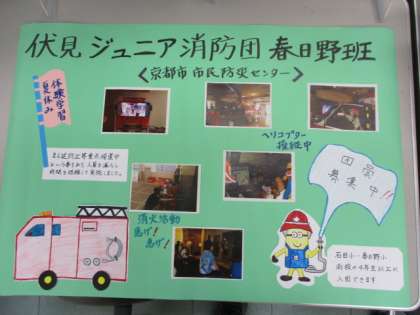 伏見ジュニア消防団 春日野班
<京都市 市民防災センター>
夏休み
体験学習
ヘリコプター
操縦中
団員
募集中!!
消火活動
急げ!
急げ!
石田小・春日野小
両校の4年生以上が
入団できます